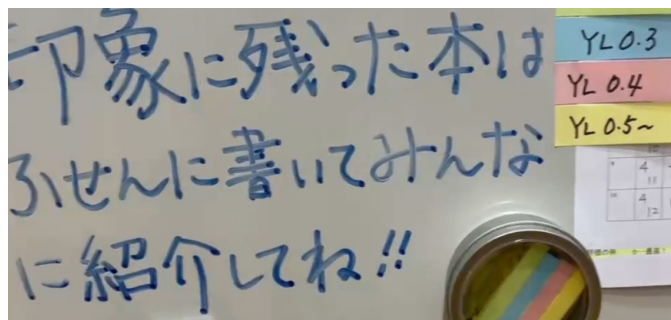 印象に残った本は
ふせんに書いてみんな
に紹介してね!!
YL 0.3
YL 0.4
YL 0.5~
4
11
4
12